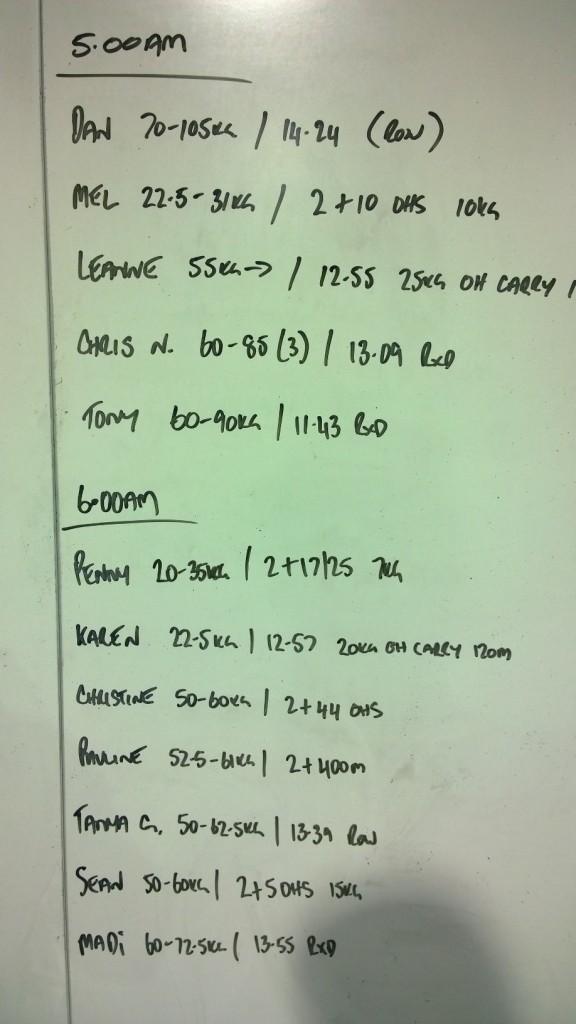 5.00AM
DAN 70-105KG / 14.24 (ROW)
MEL 22.5-31KG / 2+10 OHS 10KG
LEANNE 55KG→ / 12.55 25KG OH CARRY
CHRIS N. 60-85 (3) / 13.09 RXD
TONY 60-90KG / 11.43 RXD
6.00AM
PENNY 20-35KG / 2+17/25 7KG
KAREN 22.5KG / 12.57 20KG OH CARRY 120M
CHRISTINE 50-60KG / 2+44 OHS
PAULINE 52.5-61KG / 2+400M
G. 50-62.5KG / 13.39 ROW
SEAN 50-60KG / 2+5 OHS 15KG
MADi 60-72.5KG / 13.55 RXD